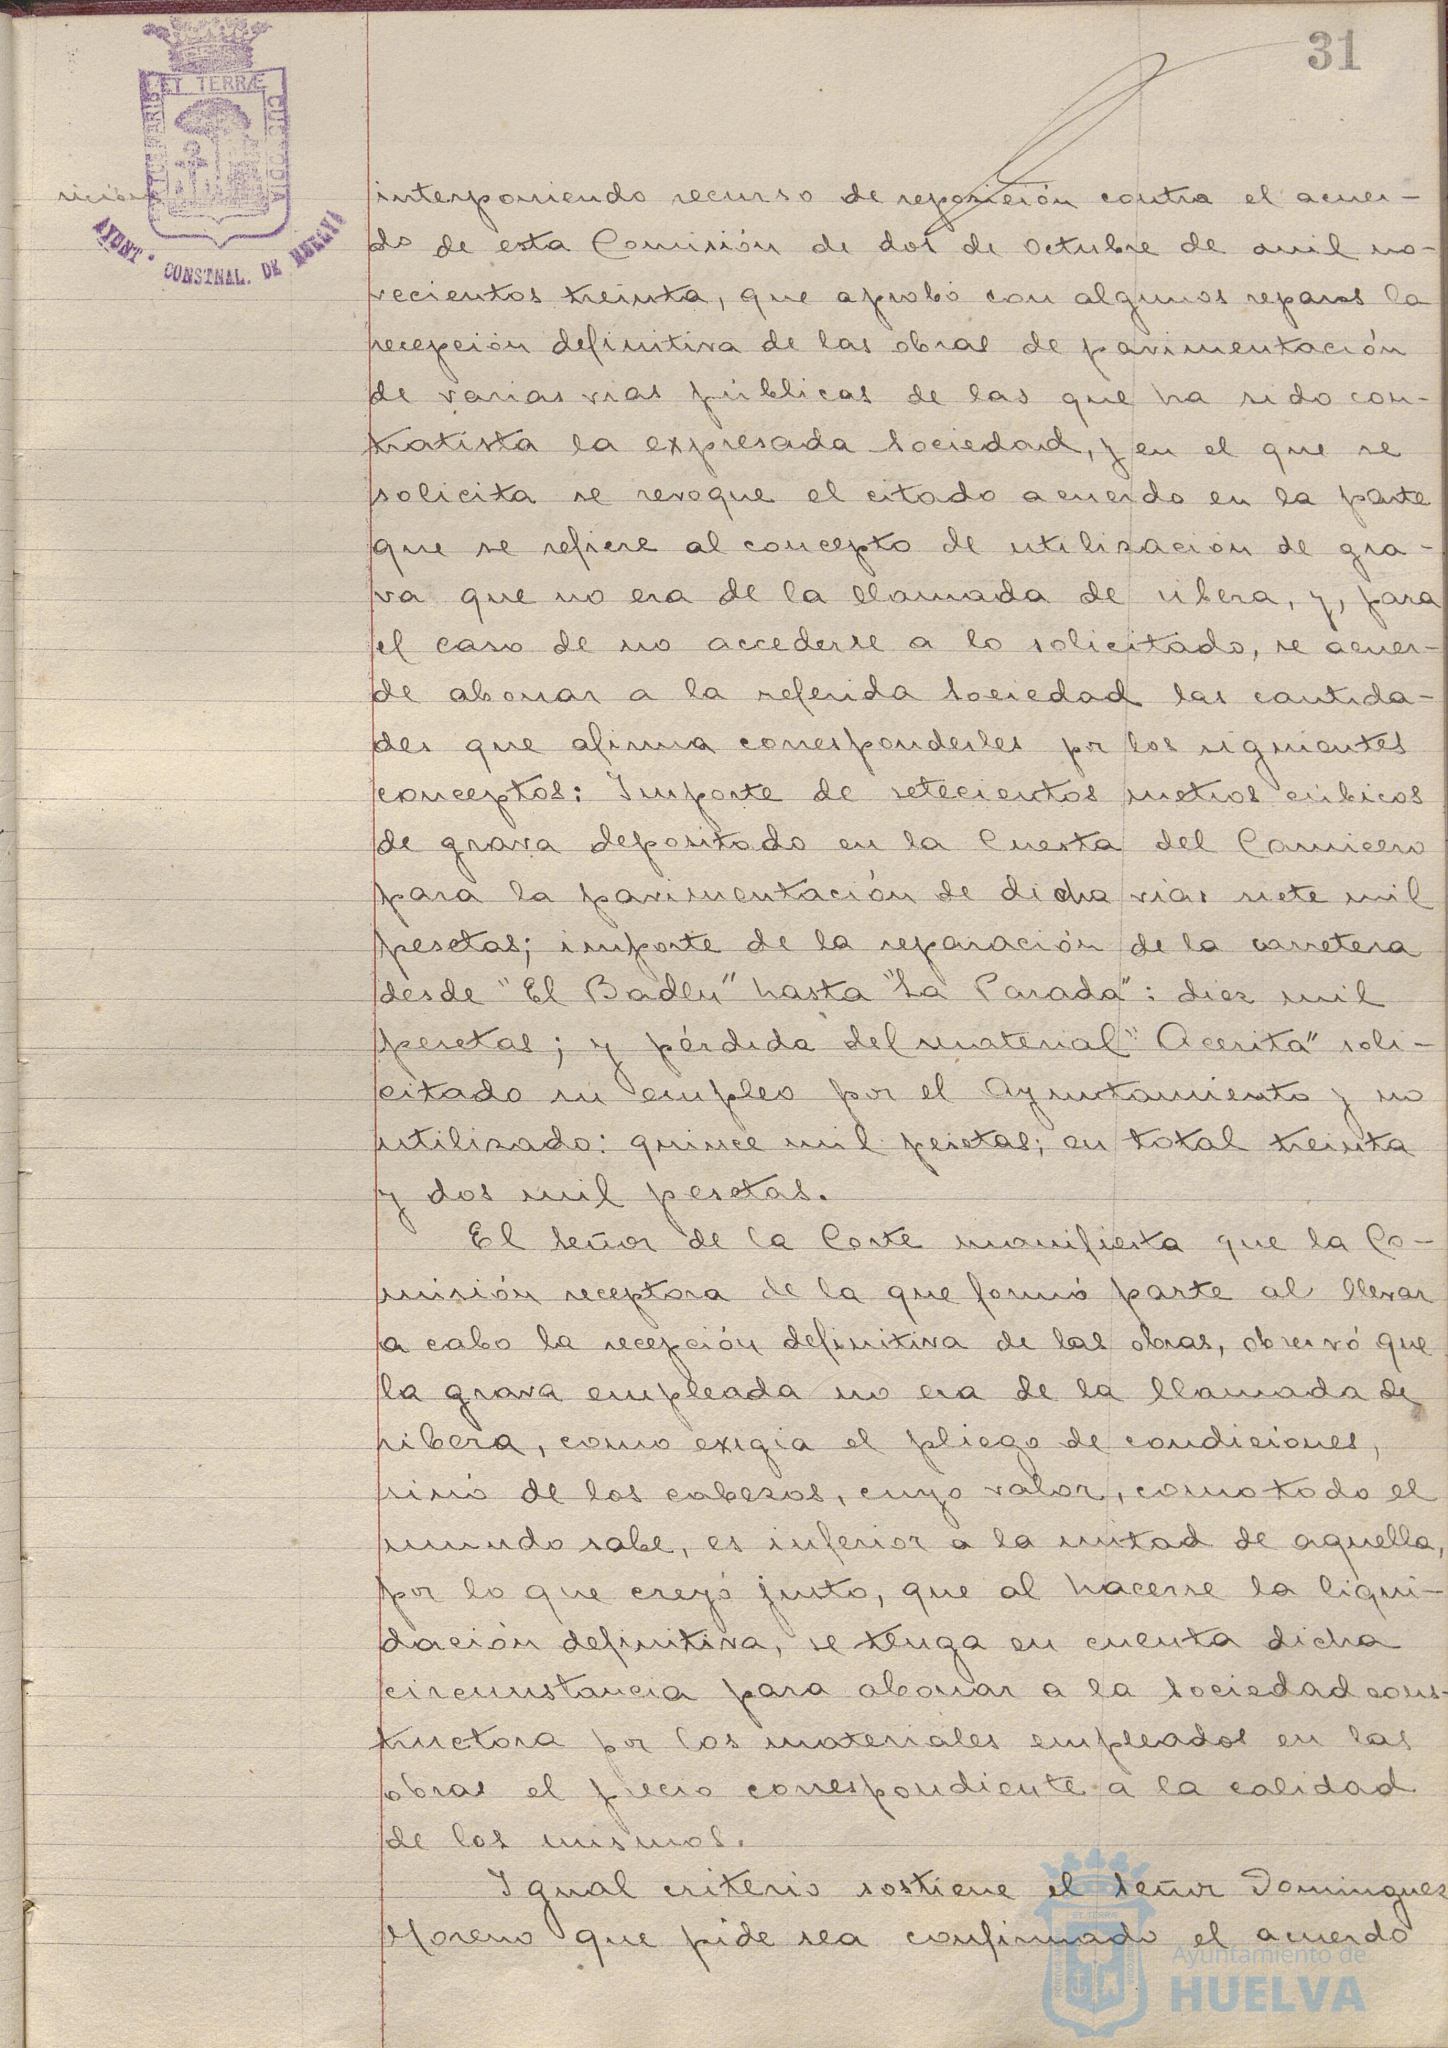 31
ET TERRÆ
CUSTODIA
AYUNT. CONSTNAL. DE HUELVA
sición
interponiendo recurso de reposición contra el acuer-
do de esta Comisión de dos de Octubre de mil no-
vecientos treinta, que aprobó con algunos reparos la
recepción definitiva de las obras de pavimentación
de varias vias públicas de las que ha sido con-
tratista la expresada Sociedad, y en el que se
solicita se revoque el citado acuerdo en la parte
que se refiere al concepto de utilización de gra-
va que no era de la llamada de ribera, y, para
el caso de no accederse a lo solicitado, se acuer-
de abonar a la referida Sociedad las cantida-
des que afirma corresponderles pr los siguientes
conceptos: Importe de setecientos metros cúbicos
de grava depositado en la Cuesta del Carnicero
para la pavimentación de dicha vias siete mil
pesetas; importe de la reparación de la carretera
desde "El Badén" hasta "La Parada": diez mil
pesetas; y pérdida del material "Acerita" soli-
citado su empleo por el Ayuntamiento y no
utilizado: quince mil pesetas; en total treinta
y dos mil pesetas.
El Señor de la Corte manifiesta que la Co-
misión receptora de la que formó parte al llevar
a cabo la recepción definitiva de las obras, observó que
la grava empleada no era de la llamada de
ribera, como exigia el pliego de condiciones,
sinó de los cabezos, cuyo valor, como todo el
mundo sabe, es inferior a la mitad de aquella,
por lo que creyó justo, que al hacerse la liqui-
dación definitiva, se tenga en cuenta dicha
circunstancia para abonar a la Sociedad cons-
tructora pr los materiales empleados en las
obras el precio correspondiente a la calidad
de los mismos.
Igual criterio sostiene el Señor Dominguez
Moreno que pide sea confirmado el acuerdo
Ayuntamiento de
HUELVA